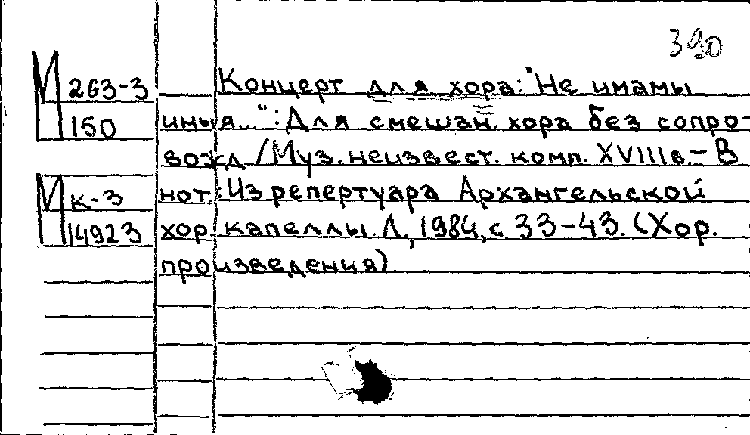 390
М 263-3
150
Концерт для хора: "Не имамы
иныя...": Для смешан. хора без сопро-
вожд. / Муз. неизвест. комп. XVIII в. – В
М к-3
14923
нот.: Из репертуара Архангельской
хор. капеллы. Л., 1984, с. 33-43. (Хор.
произведения)